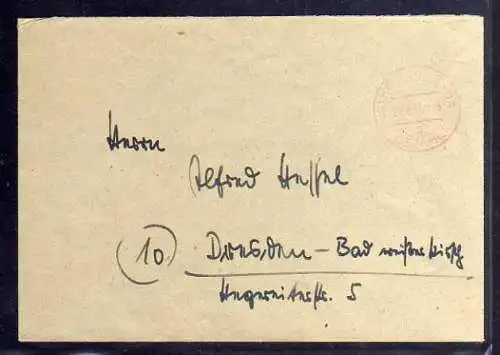 Herrn
Alfred Hessel
10 Dresden - Bad weißer Hirsch
Hegereiterstr. 5